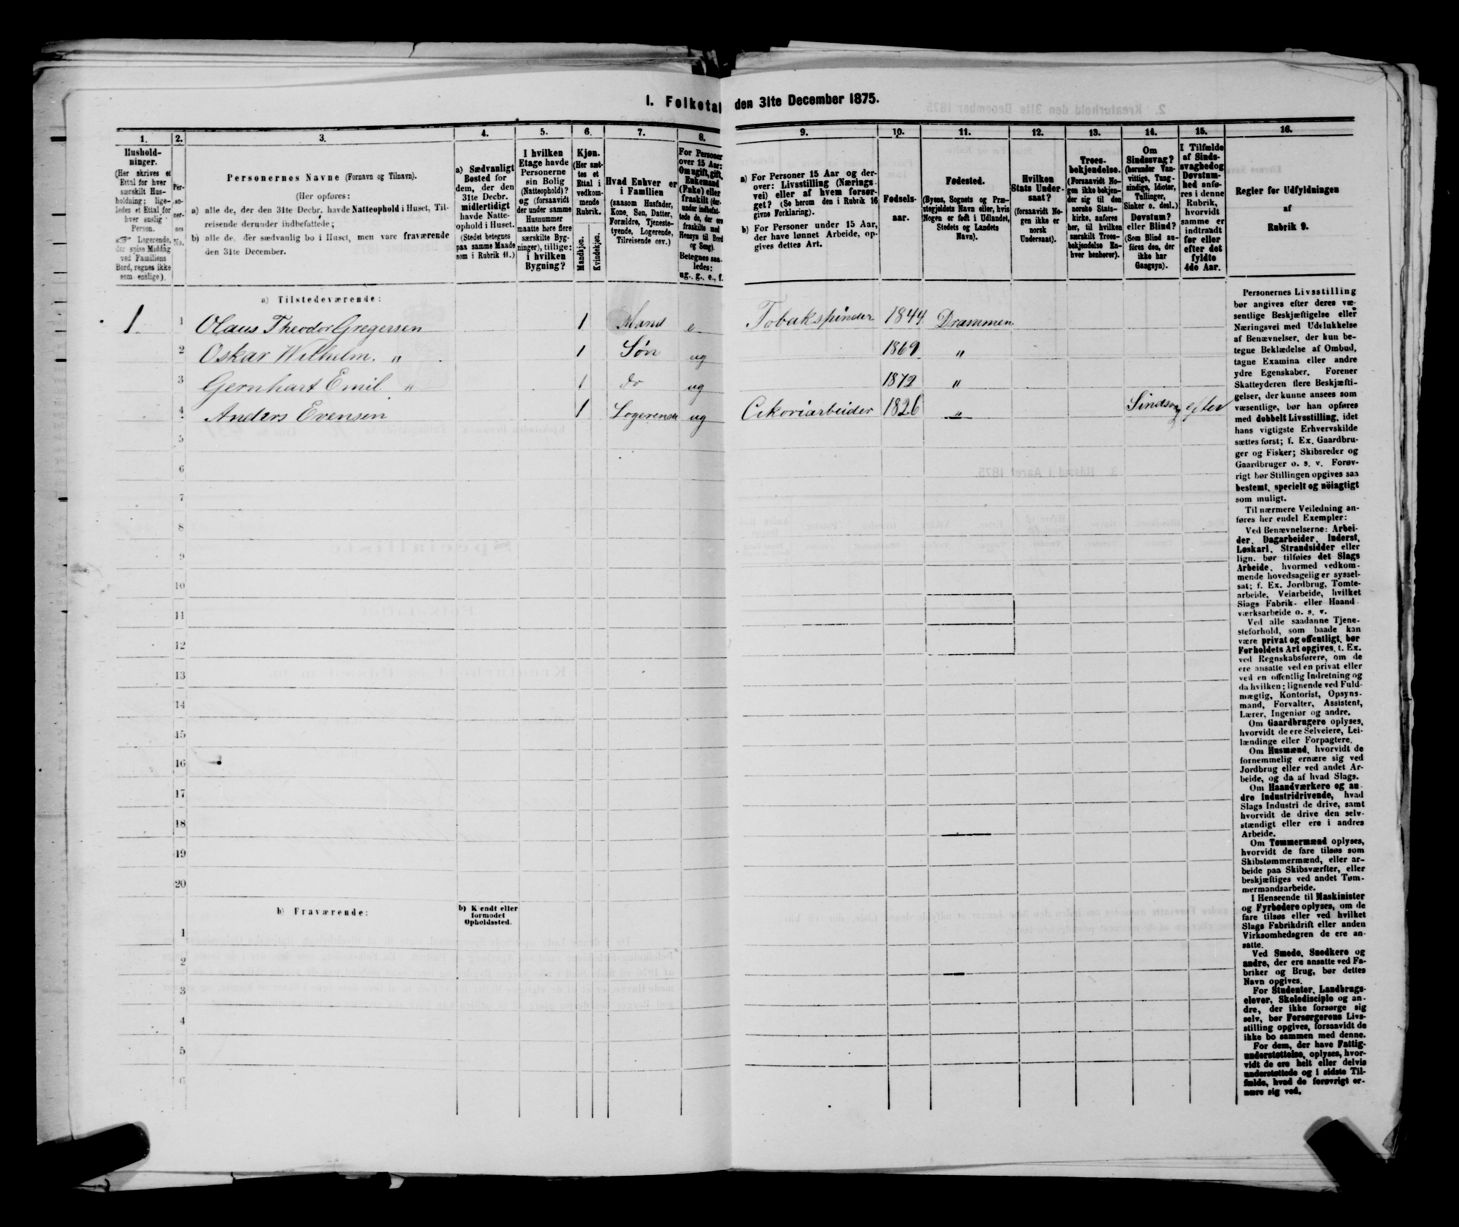 1. Folketal den 31te December 1875.
1. 2. 3. 4. 5. 6. 7. 8. 9. 10. 11. 12. 13. 14. 15. 16.
Hushold-
ninger.
(Her skrives et
Ettal for hver
særskilt Hus-
holdning; lige-
ledes et Ettal for
hver enslig
Person.
☞ Logerende,
der spise Middag
ved Familiens
Bord, regnes ikke
som enslige).
Per-
so-
ner-
nes
No.
Personernes Navne (Fornavn og Tilnavn).
(Her opføres:
a) alle de, der den 31te Decbr. havde Natteophold i Huset, Til-
reisende derunder indbefattede;
b) alle de, der sædvanlig bo i Huset, men vare fraværende
den 31te December.
a) Sædvanligt
Bosted for
dem, der den
31te Decbr.
midlertidigt
havde Natte-
ophold i Huset.
(Stedet betegnes
paa samme Maade
som i Rubrik 11.)
I hvilken
Etage havde
Personerne
sin Bolig
(Natteophold)?
og (forsaavidt
der under samme
Husnummer
maatte høre flere
særskilte Byg-
ninger), tillige:
i hvilken
Bygning?
Kjøn.
(Her sæt-
tes et
Ettal i
vedkom-
mende
Rubrik.
Mandkjøn.
Kvindekjøn.
Hvad Enhver er
i Familien
(saasom Husfader,
Kone, Søn, Datter,
Forældre, Tjeneste-
tyende, Logerende,
Tilreisende osv.)
For Personer
over 15 Aar:
Om ugift, gift,
Enkemand
(Enke) eller
fraskilt
Betegnes saa-
ledes:
ug., g., e., f.
a) For Personer 15 Aar og der-
over: Livsstilling (Nærings-
vei) eller af hvem forsør-
get? (Se herom den i Rubrik 16
givne Forklaring).
b) For Personer under 15 Aar,
der have lønnet Arbeide, op-
gives dettes Art.
Fødsels-
aar.
Fødested.
(Byens, Sognets og Præ-
stegjeldets Navn eller, hvis
Nogen er født i Udlandet,
Stedets og Landets
Navn).
Hvilken
Stats Under-
saat?
(forsaavidt No-
gen ikke er
norsk
Undersaat).
Troes-
bekjendelse.
(Forsaavidt No-
gen ikke bekjen-
der sig til den
norske Stats-
kirke, anføres
her, til hvilken
særskilt Troes-
bekjendelse En-
hver henhører).
Om
Sindssvag?
(herunder Van-
vittige, Tung-
sindige, Idioter,
Tullinger,
Sinker o. desl.)
Døvstum?
eller Blind?
(Som Blind an-
føres den, der
ikke har
Gangsyn).
I Tilfælde
af Sinds-
svaghed og
Døvstum-
hed anfø-
res i denne
Rubrik,
hvorvidt
samme er
indtraadt
før eller
efter det
fyldte
4de Aar.
Regler for Udfyldningen
af
Rubrik 9.
a) Tilstedeværende:
1 1 Olaus Theodor Gregersen 1 Mand e Tobakspinder 1844 Drammen
2 Oskar Wilhelm. " 1 Søn ug 1869 "
3 Gernhart Emil " 1 do ug 1872 "
4 Anders Evensen 1 Logerende ug Cikoriarbeider 1826 " Sindssvg efter
5
6
7
8
9
10
11
12
13
14
15
16
17
18
19
20
b) Fraværende:
b) Kjendt eller
formodet
Opholdssted.
1
2
3
4
5
6
Personernes Livsstilling
bør angives efter deres væ-
sentlige Beskjæftigelse eller
Næringsvei med Udelukkelse
af Benævnelser, der kun be-
tegne Beklædelse af Ombud,
tagne Examina eller andre
ydre Egenskaber. Forener
Skatteyderen flere Beskjæfti-
gelser, der kunne ansees som
væsentlige, bør han opføres
med dobbelt Livsstilling, idet
hans vigtigste Erhvervskilde
sættes først; f. Ex. Gaardbru-
ger og Fisker; Skibsreder og
Gaardbruger o. s. v. Forøv-
rigt bør Stillingen opgives saa
bestemt, specielt og nøiagtigt
som muligt.
Til nærmere Veiledning an-
føres her endel Exempler:
Ved Benævnelserne: Arbei-
der, Dagarbeider, Inderst,
Løskarl, Strandsidder eller
lign. bør tilføies det Slags
Arbeide, hvormed vedkom-
mende hovedsagelig er syssel-
sat; f. Ex. Jordbrug, Tomte-
arbeide, Veiarbeide, hvilket
Slags Fabrik- eller Haand-
værksarbeide o. s. v.
Ved alle saadanne Tjene-
steforhold, som baade kan
være privat og offentligt, bør
Forholdets Art opgives, t. Ex.
ved Regnskabsførere, om de
ere ansatte ved en privat eller
ved en offentlig Indretning og
da hvilken; lignende ved Fuld-
mægtig, Kontorist, Opsyns-
mand, Forvalter, Assistent,
Lærer, Ingeniør og andre.
Om Gaardbrugere oplyses,
hvorvidt de ere Selveiere, Lei-
lændinge eller Forpagtere.
Om Husmænd, hvorvidt de
fornemmelig ernære sig ved
Jordbrug eller ved andet Ar-
beide, og da af hvad Slags.
Om Haandværkere og an-
dre Industridrivende, hvad
Slags Industri de drive, samt
hvorvidt de drive den selv-
stændigt eller ere i andres
Arbeide.
Om Tømmermænd oplyses,
hvorvidt de fare tilsøs som
Skibstømmermænd, eller ar-
beide paa Skibsværfter, eller
beskjæftiges ved andet Tøm-
mermandsarbeide.
I Henseende til Maskinister
og Fyrbødere oplyses, om de
fare tilsøs eller ved hvilket
Slags Fabrikdrift eller anden
Virksomhedsgren de ere an-
satte.
Ved Smede, Snedkere og
andre, der ere ansatte ved Fa-
briker og Brug, bør dettes
Navn opgives.
For Studenter, Landbrugs-
elever, Skoledisciple og an-
dre, der ikke forsørge sig
selv, bør Forsørgerens Livs-
stilling opgives, forsaavidt de
ikke bo sammen med denne.
For dem, der have Fattig-
understøttelse, oplyses, hvor-
vidt de ere helt eller delvis
understøttede og i sidste Til-
fælde, hvad de forøvrigt er-
nære sig ved.